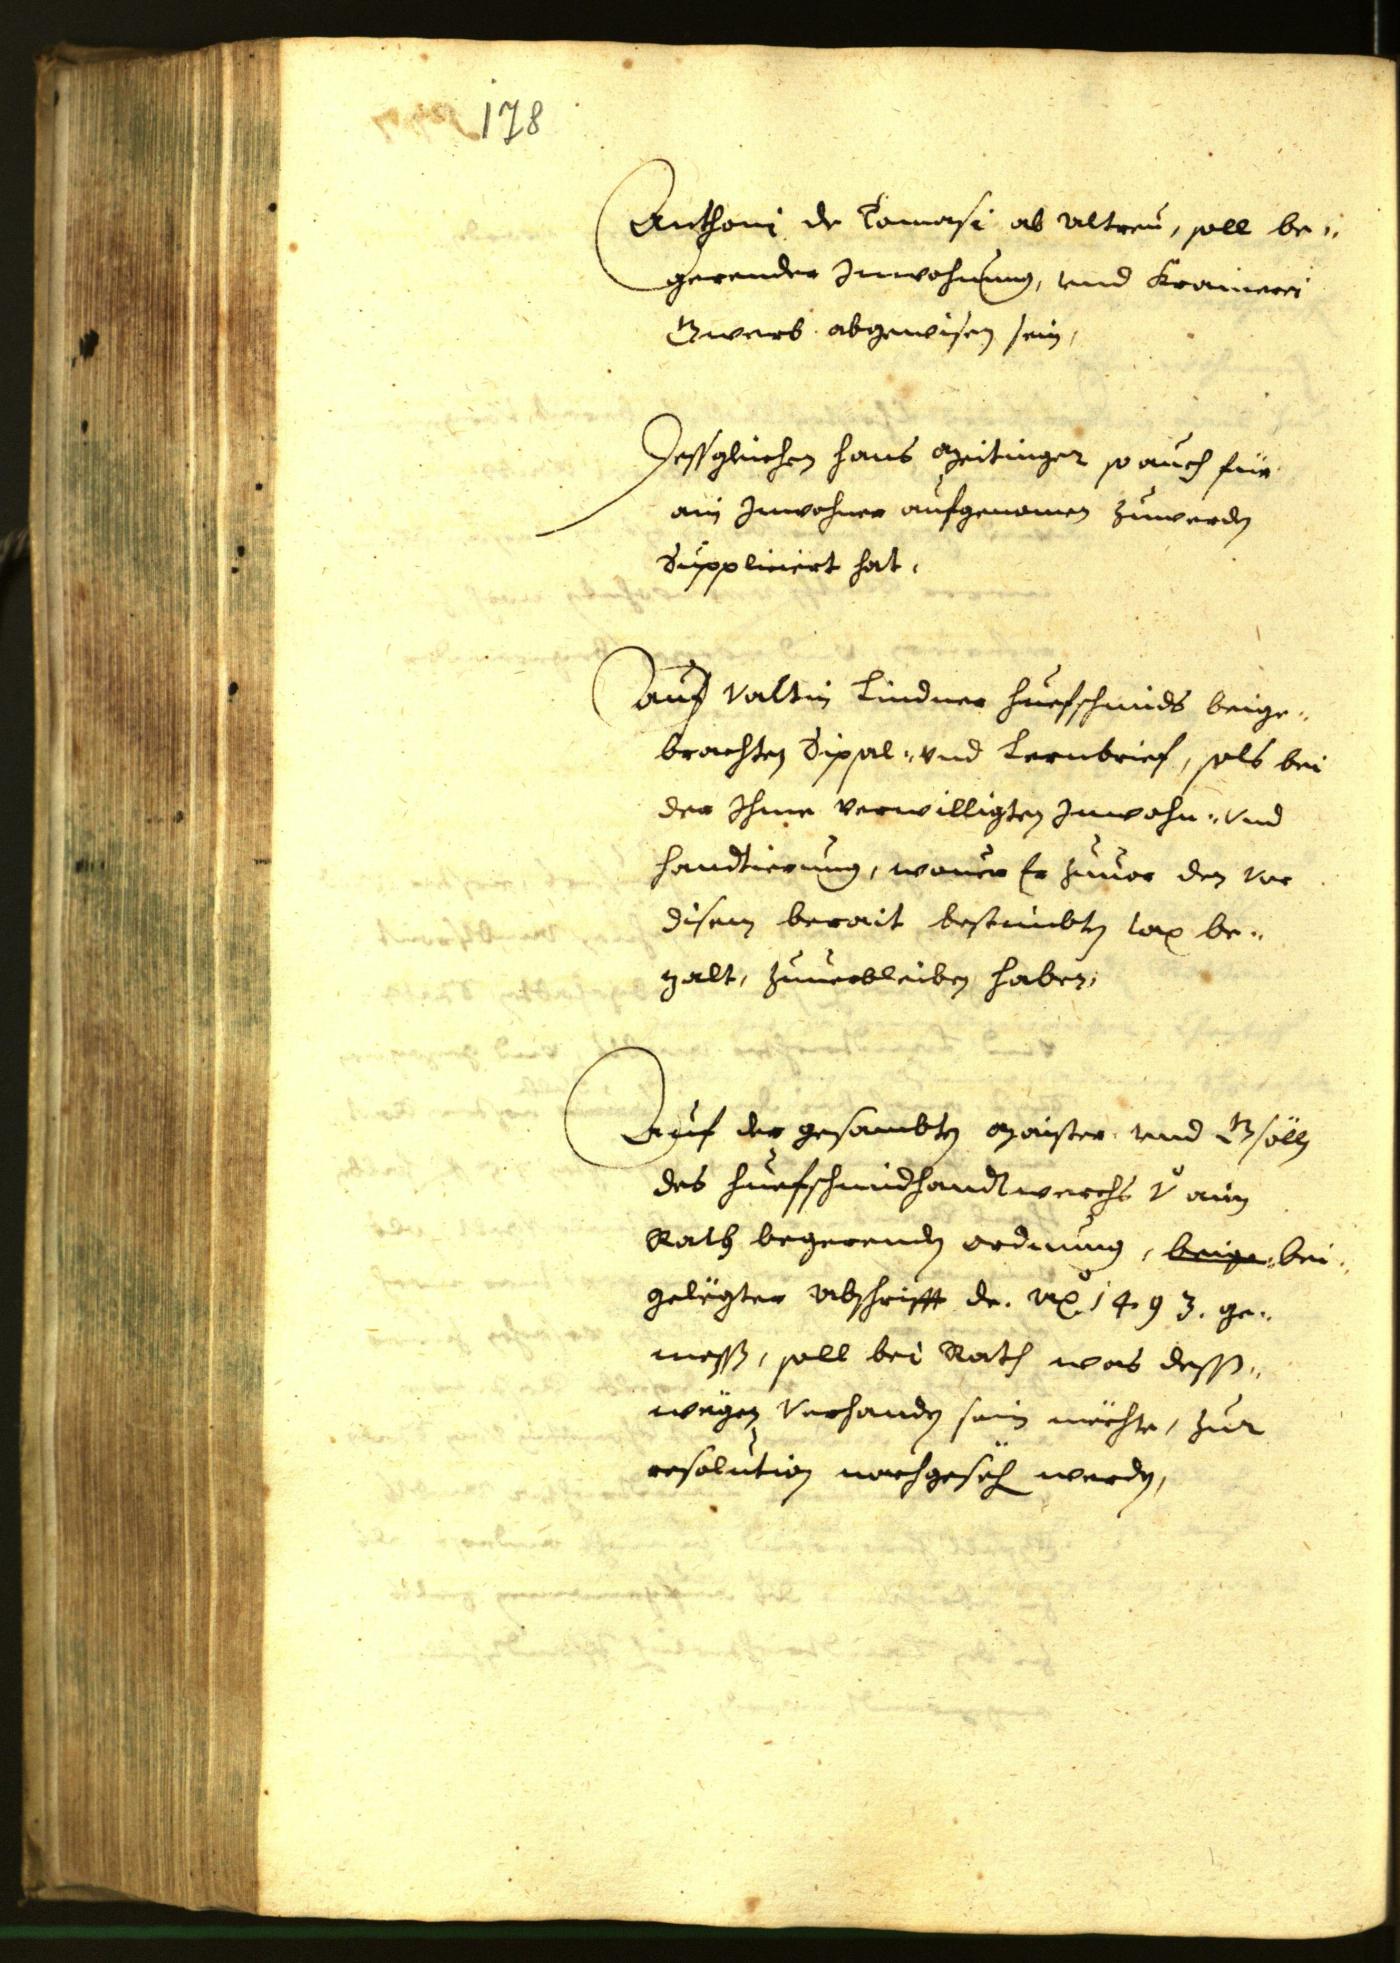 178
Anthoni de Tomasi ab Ultren, soll be„
gerender Inwohnung, vnd Kramerei
Gwerb abgewisen sein,
Dessgleichen Hans Meitinger so auch für
ain Inwohner aufgenomen zuwerden
Suppliciert hat,
Auf Valtin Lindner Huefschmids beige„
brachten Sipsal„ vnd Lernbrief, sols bei
der Ihme verwilligten Inwohn„ vnd
Handtierung, wouer Er zuuor den vor
disem berait bestimbten tax be„
zalt, zuuerbleiben haben,
Auf der gesambten Maister vnd Gsölln
des Huefschmidhandtwerchs v̊ ain
Rath begerenden ordnung, beige„ bei„
gelegter Abschrifft de. Ao 1493. ge„
mess, soll bei Rath was dess„
wegen verhanden sein mechte, zur
resolution nachgesech werden,